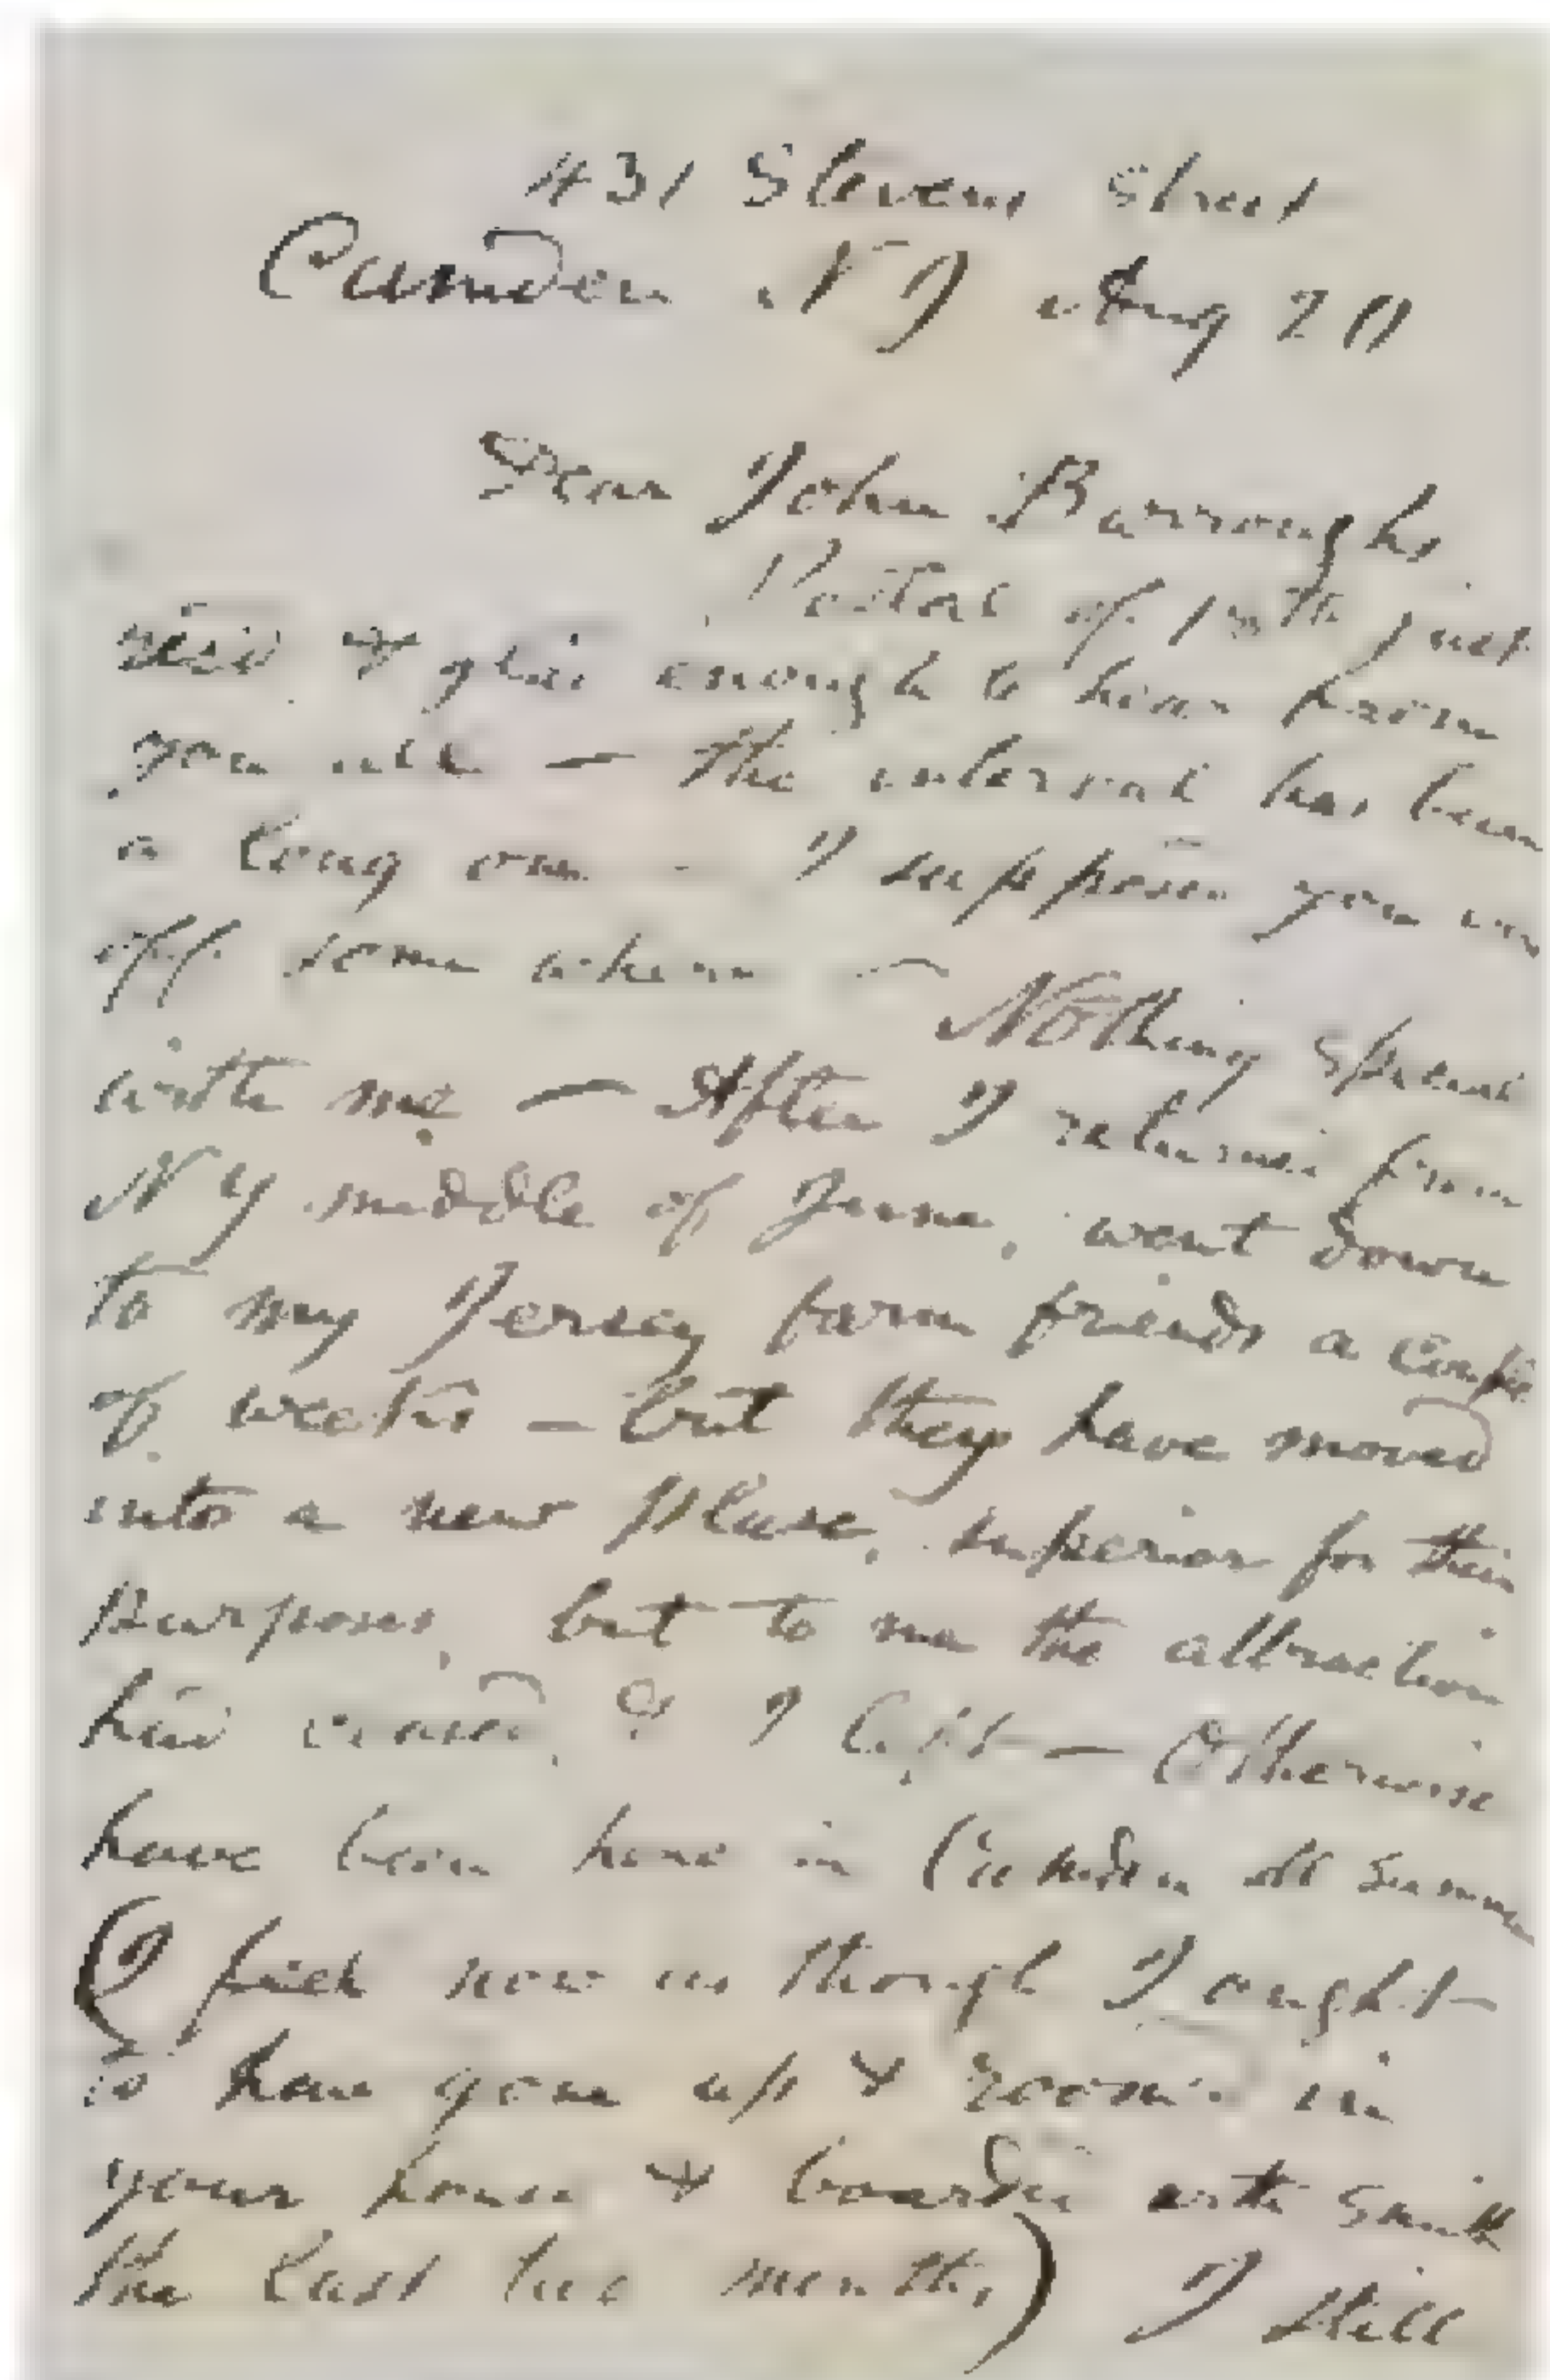 431 Stevens Street
Camden N J Aug 20
Dear John Burroughs
Postal of 18th just
rec'd & glad enough to hear from
you all — the interval has been
a long one — I suppose you were
off some where — Nothing special
with me — After I returned from
N Y middle of June, went down
to my Jersey farm friends a couple
of weeks — but they have moved
into a new place, superior for their
purposes, but to me the attraction
had ceased, & I left — Otherwise
have been here in Camden all summer
(I feel now as though I ought
to have gone up & room'd in
your house & boarded with Smith
the last two months) I still